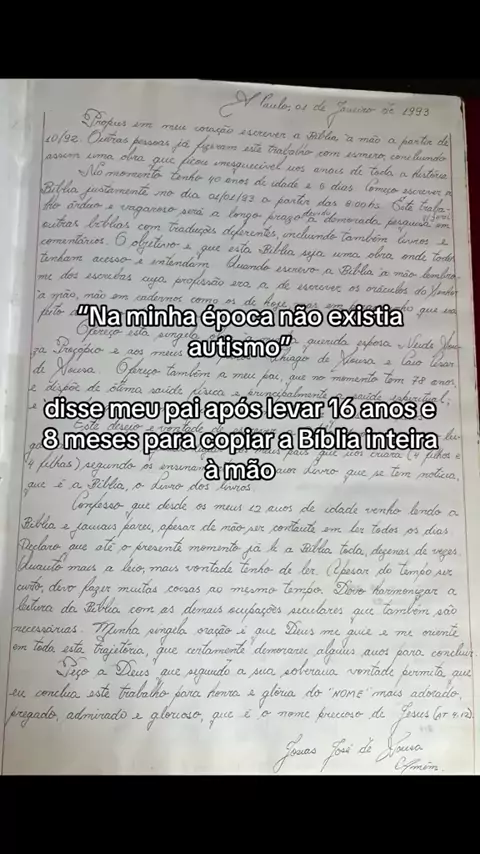 S. Paulo, 01 de Janeiro de 1993
Propus em meu coração escrever a Bíblia à mão a partir de
10/92. Outras pessoas já fizeram este trabalho com esmero, concluindo
assim uma obra que ficou inesquecível nos anais de toda a história.
No momento tenho 40 anos de idade e 6 dias. Começo escrever a
Bíblia justamente no dia 01/01/93 a partir das 8:00hs. Este traba-
lho árduo e vagaroso será a longo prazo devido demorada pesquisa em
outras bíblias com traduções diferentes, incluindo também livros e
comentários. O objetivo é que esta Bíblia seja uma obra onde todos
tenham acesso e entendam. Quando escrevo a Bíblia à mão lembro-
me dos escribas cuja profissão era a de escrever os oráculos do Senhor
à mão, não em cadernos como os de hoje, mas em
"Na minha época não existia
autismo"
Ofereço esta singela querida esposa Neide Sou-
za Procópio e aos meus Thiago de Sousa e Caio Cesar
de Sousa. Ofereço também a meu pai, que no momento tem 78 anos,
e dispõe de ótima saúde física e principalmente a saúde espiritual;
disse meu pai após levar 16 anos e
8 meses para copiar a Bíblia inteira
à mão
Este desejo e vontade de escrever
meus pais que nos criara (4 filhos e
4 filhas) segundo os ensinam Livro que se tem notícia,
que é a Bíblia, o Livro dos livros.
Confesso que desde os meus 12 anos de idade venho lendo a
Bíblia e jamais parei, apesar de não ser constante em ler todos os dias.
Declaro que até o presente momento já li a Bíblia toda, dezenas de vezes.
Quanto mais a leio, mais vontade tenho de ler. Apesar do tempo ser
curto, devo fazer muitas coisas ao mesmo tempo. Devo harmonizar a
leitura da Bíblia com as demais ocupações seculares que também são
necessárias. Minha singela oração é que Deus me guie e me oriente
em toda esta trajetória, que certamente demorarei alguns anos para concluir.
Peço a Deus que segundo a sua soberana vontade permita que
eu conclua este trabalho para honra e glória do "NOME" mais adorado,
pregado, admirado e glorioso, que é o nome precioso de Jesus (AT 4.12).
Josias José de Sousa
Amém.